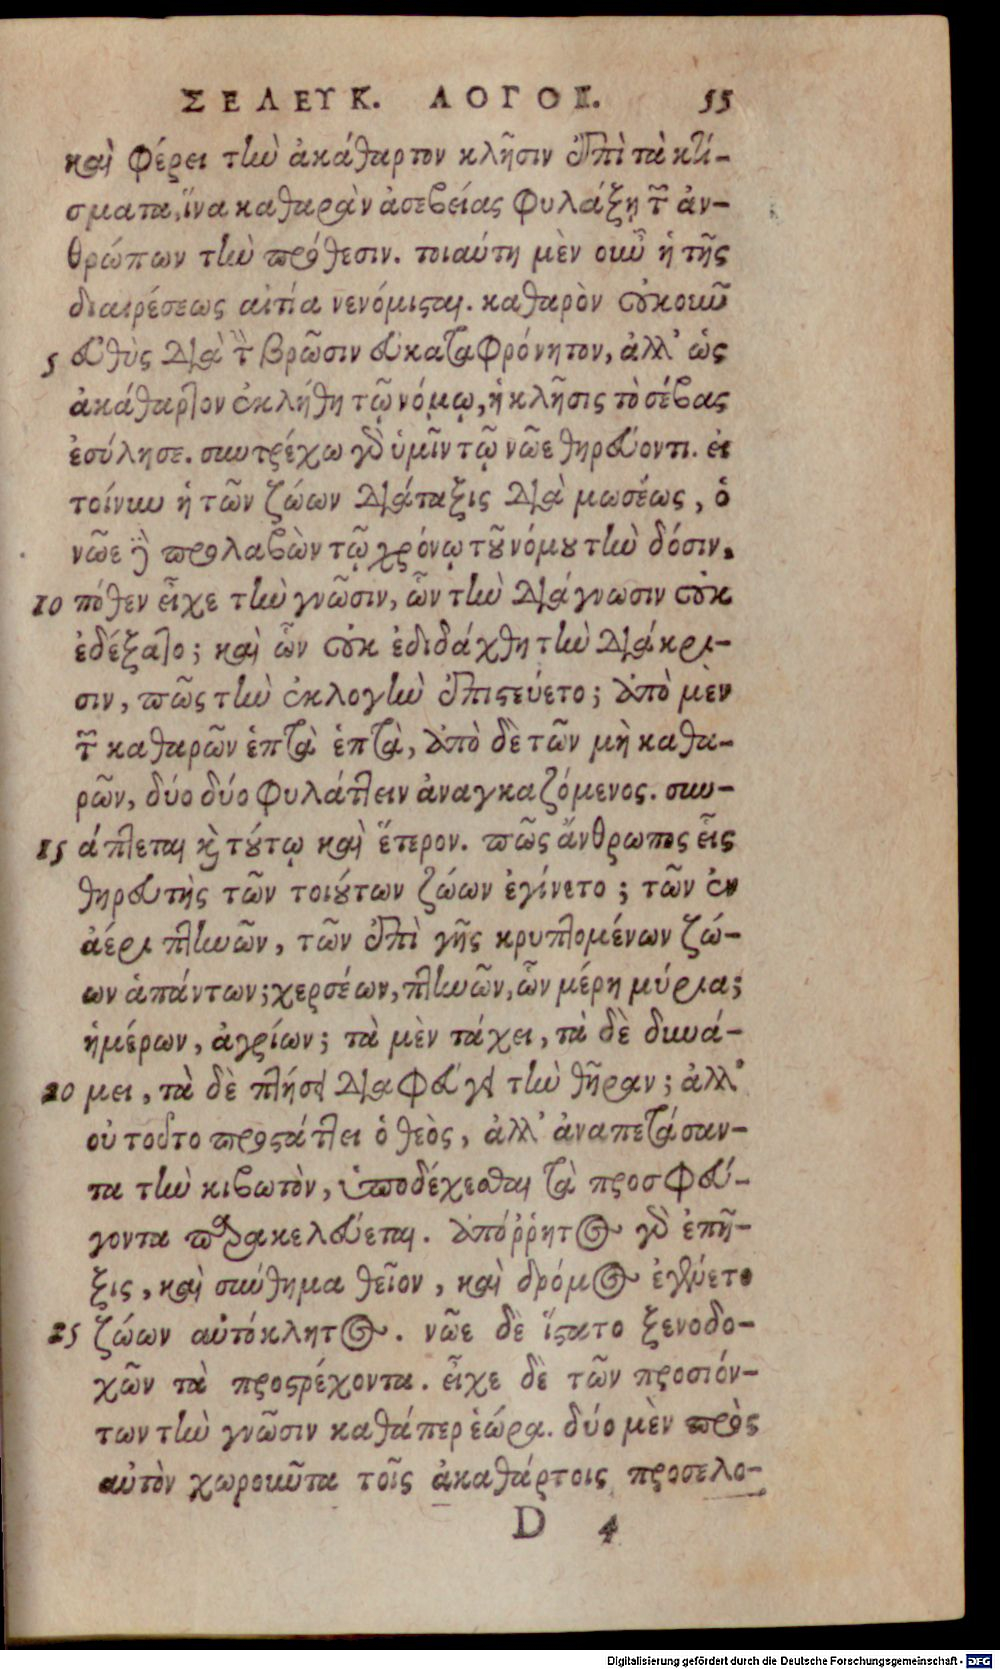 ΣΕΛΕΥΚ. ΛΟΓΟΣ. 55
καὶ φέρει τὴν ἀκάθαρτον κλῆσιν ἐπὶ τὰ κτί-
σματα, ἵνα καθαρὰν ἀσεβείας φυλάξῃ τῶν ἀν-
θρώπων τὴν πρόθεσιν. τοιαύτη μὲν οὖν ἡ τῆς
διαιρέσεως αἰτία νενόμισται. καθαρὸν οὐκοῦν
5 εὐθὺς διὰ τὴν βρῶσιν εὐκαταφρόνητον, ἀλλ' ὡς
ἀκάθαρτον ἐκλήθη τῷ νόμῳ, ἡ κλῆσις τὸ σέβας
ἐσύλησε. συντρέχω γὰρ ὑμῖν τῷ νῶε θηρεύοντι. εἰ
τοίνυν ἡ τῶν ζώων διάταξις διὰ μωσέως, ὁ
νῶε δὲ προλαβὼν τῷ χρόνῳ τοῦ νόμου τὴν δόσιν,
10 πόθεν εἶχε τὴν γνῶσιν, ὧν τὴν διάγνωσιν οὐκ
ἐδέξατο; καὶ ὧν οὐκ ἐδιδάχθη τὴν διάκρι-
σιν, πῶς τὴν ἐκλογὴν ἐπιστεύετο; ἀπὸ μὲν
τῶν καθαρῶν ἑπτὰ ἑπτὰ, ἀπὸ δὲ τῶν μὴ καθα-
ρῶν, δύο δύο φυλάττειν ἀναγκαζόμενος. συν-
15 άπτεται καὶ τούτῳ καὶ ἕτερον. πῶς ἄνθρωπος εἷς
θηρευτὴς τῶν τοιούτων ζώων ἐγίνετο; τῶν ἐν
ἀέρι πτηνῶν, τῶν ἐπὶ γῆς κρυπτομένων ζώ-
ων ἁπάντων; χερσέων, πτηνῶν, ὧν μέρη μύρια;
ἡμέρων, ἀγρίων; τὰ μὲν τάχει, τὰ δὲ δυνά-
20 μει, τὰ δὲ πτήσει διαφεύγει τὴν θῆραν; ἀλλ'
οὐ τοῦτο προστάττει ὁ θεὸς, ἀλλ' ἀναπετάσαν-
τα τὴν κιβωτὸν, ὑποδέχεσθαι τὰ προσφεύ-
γοντα παρακελεύεται. ἀπόῤῥητος γὰρ ἐπῆ-
ξις, καὶ σύνθημα θεῖον, καὶ δρόμος ἐγένετο
25 ζώων αὐτόκλητος. νῶε δὲ ἵστατο ξενοδο-
χῶν τὰ προστρέχοντα. εἶχε δὲ τῶν προσιόν-
των τὴν γνῶσιν καθάπερ ἑώρα. δύο μὲν πρὸς
αὐτὸν χωροῦντα τοῖς ἀκαθάρτοις προσελο-
D 4
Digitalisierung gefördert durch die Deutsche Forschungsgemeinschaft - DFG